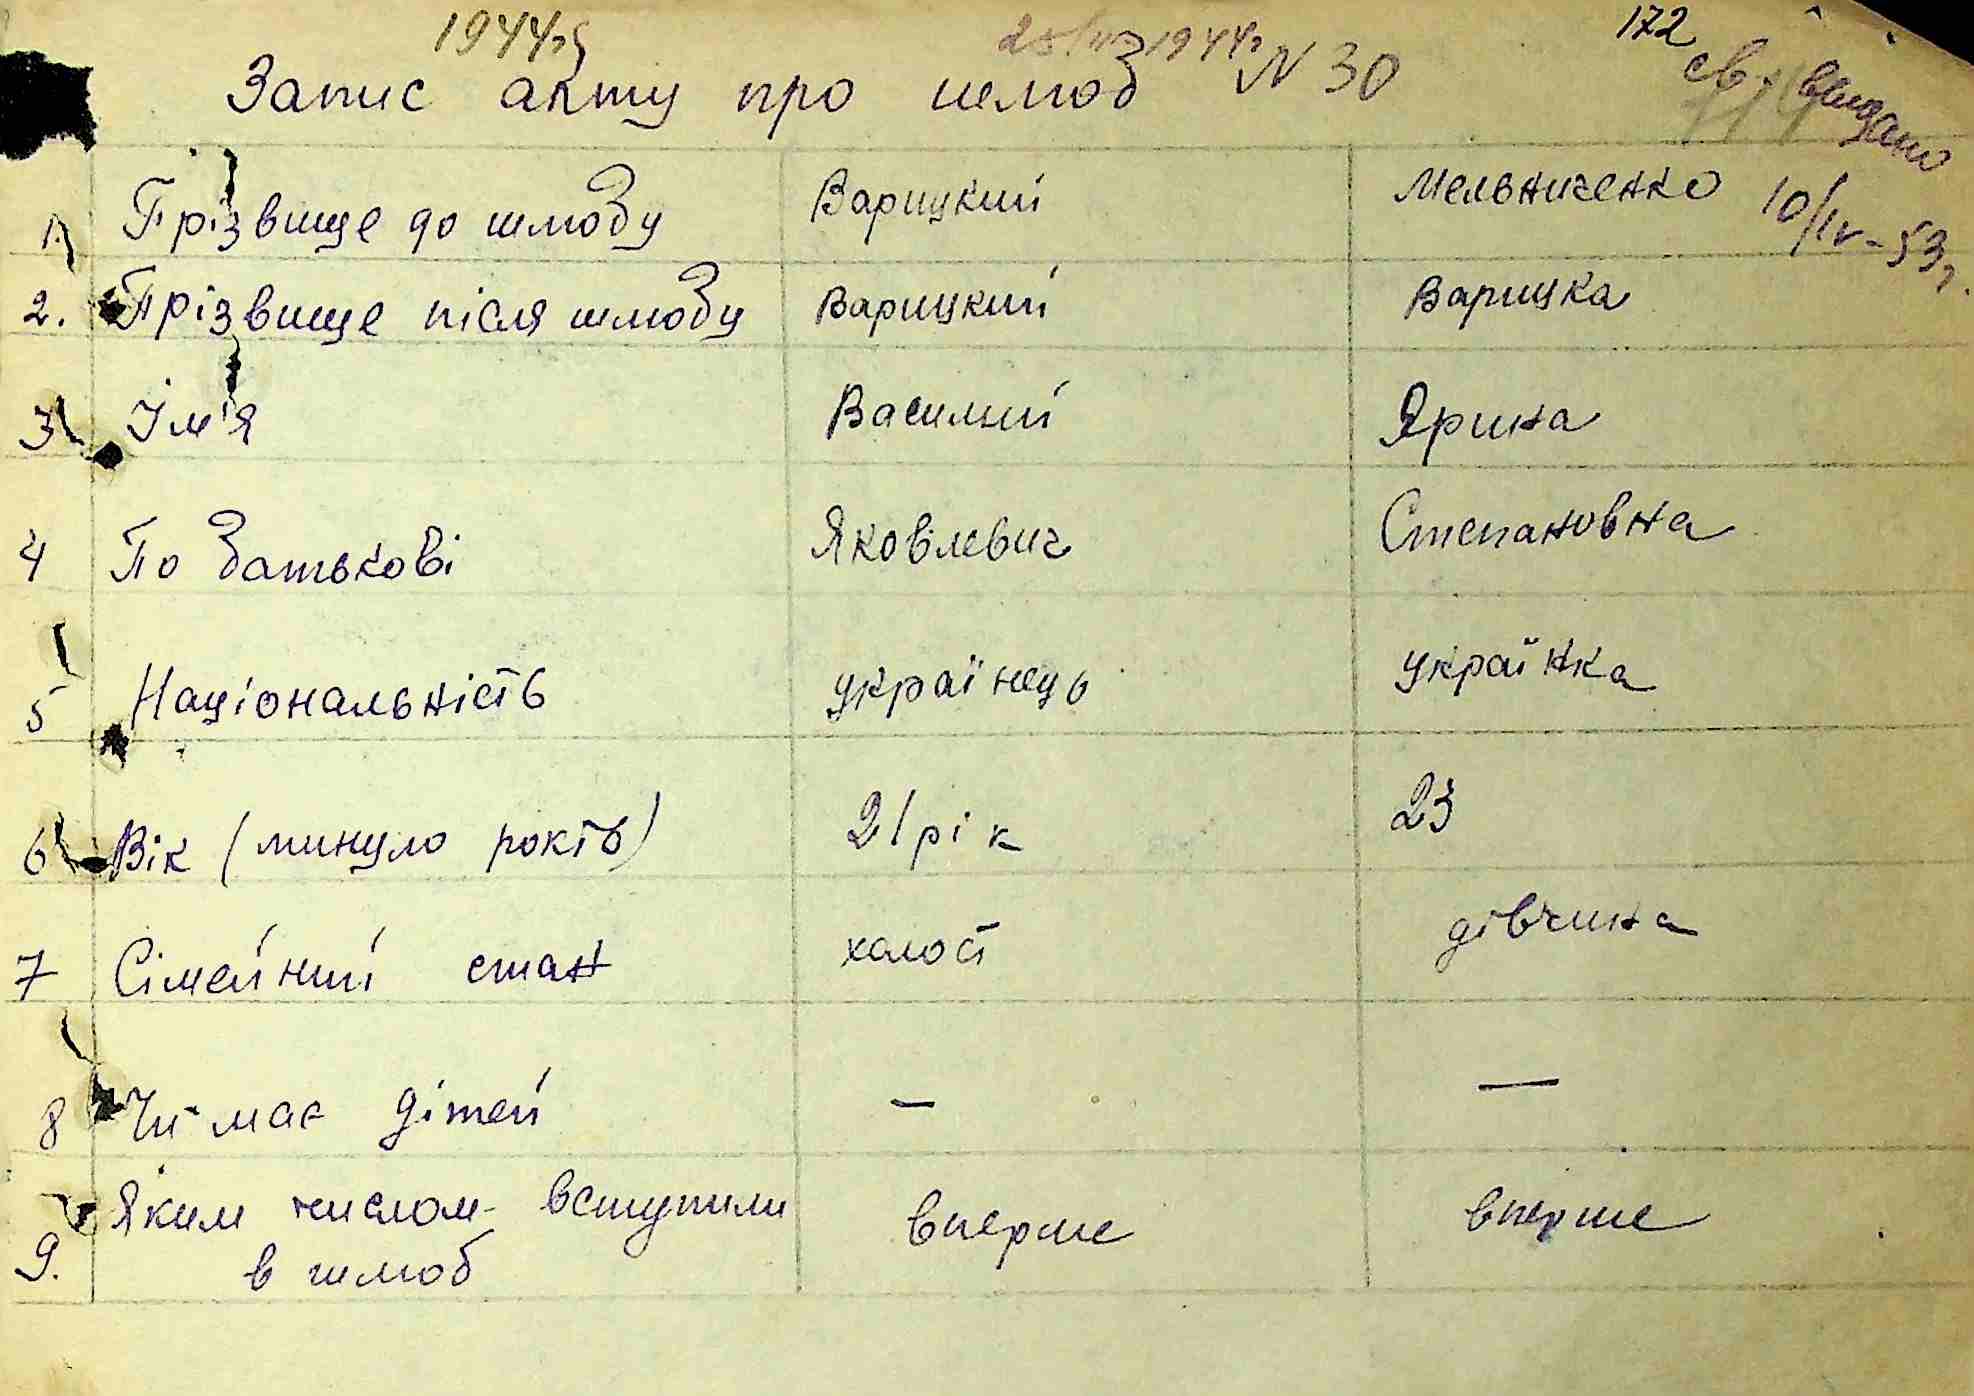 1944г 1944г 172
Запис акту про шлюб N 30
св. видано
10/IV-53г.
1. Прізвище до шлюбу Варицкий Мельниченко
2. Прізвище після шлюбу Варицкий Варицка
3 Ім'я Василий Ярина
4 По батькові Яковлевич Степановна
5 Національність українець українка
6 Вік (минуло років) 21 рік 23
7 Сімейний стан холост дівчина
8 Чи має дітей — —
9. Яким числом вступили вперше вперше
в шлюб